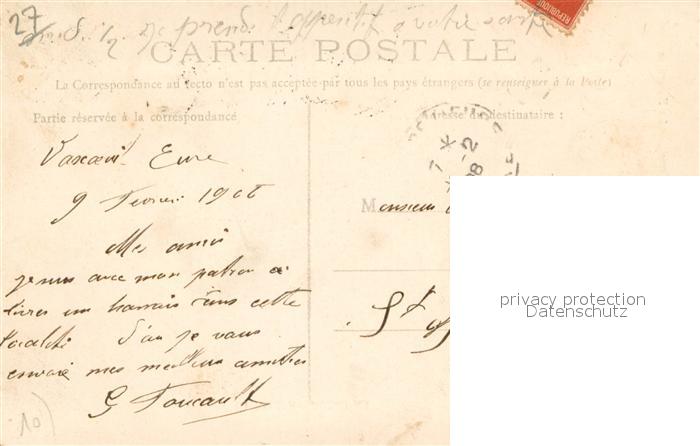 27
je prends l'apperitif à votre santé
CARTE POSTALE
La Correspondance au recto n'est pas acceptée par tous les pays étrangers (se renseigner à la Poste)
Partie réservée à la correspondance
Adresse du destinataire :
Vascœuil Eure
9 Fevrier 1908
Mes amis
je suis avec mon patron a
livrer un harnais dans cette
localité D'ou je vous
envoie mes meilleurs amities
G Foucault
10)
Monsieur
St
privacy protection
Datenschutz